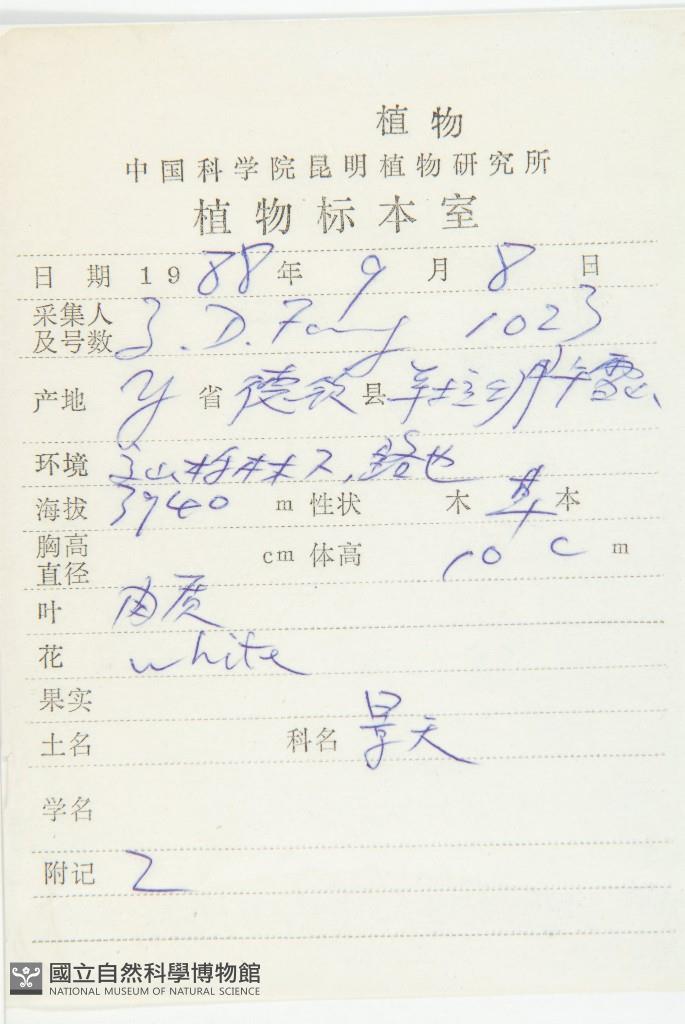 植物
中国科学院昆明植物研究所
植物标本室
日 期 1988年 9月 8日
采集人
及号数 Z.D.Fang 1023
产地 Y省 德钦 县 羊拉
环境 高山林下,路边
海拔 3940 m 性状 木 草 本
胸高
直径 cm 体高 10 c m
叶 肉质
花 white
果实
土名 科名 景天
学名
附记 2
國立自然科學博物館
NATIONAL MUSEUM OF NATURAL SCIENCE